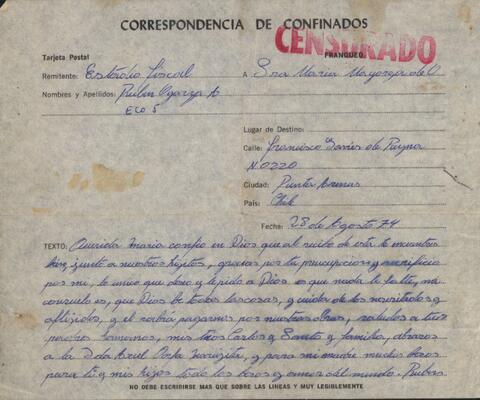 CORRESPONDENCIA DE CONFINADOS
CENSURADO
FRANQUEO
Tarjeta Postal
Remitente: Estadio Fiscal A Sra Maria Mayorga de O
Nombres y Apellidos: Ruben Oyarzo A
ECO 5
Lugar de Destino:
Calle: Francisco Javier de Reyna
N 0220
Ciudad: Punta Arenas
País: Chile
Fecha: 28 de Agosto 74
TEXTO: Querida Maria confio en Dios que al recibo de esta te encuentres
bien, junto a nuestros hijitos, gracias por tu preocupacion y sacrificio
por mi, lo unico que deseo y le pido a Dios es que nada le falte, mi
consuelo es, que Dios ve todas las cosas, y cuida de los
afligidos, y el sabrá pagarnos por nuestras obras, saludos a tus
hermanos, mis tios Carlos y y familia, abrazos
a la y para mi madre muchos besos
para ti y mis hijos todo los besos y amor del mundo. Ruben
NO DEBE ESCRIBIRSE MAS QUE SOBRE LAS LINEAS Y MUY LEGIBLEMENTE